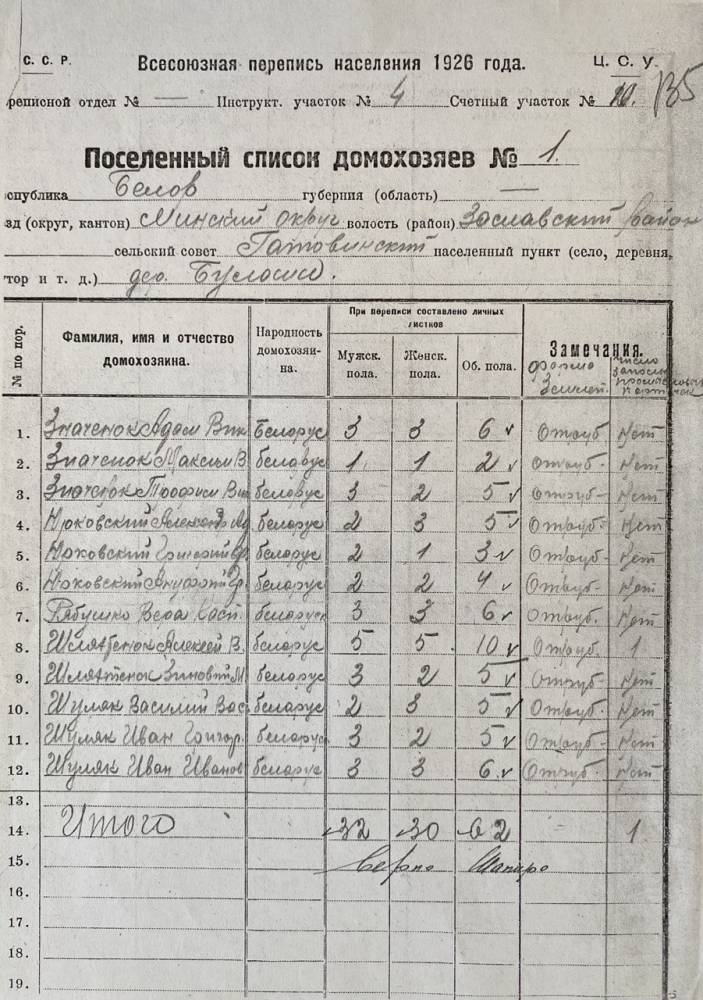 С. С. Р. Всесоюзная перепись населения 1926 года. Ц. С. У.
реписной отдел № — Инструкт. участок № 4 Счетный участок № 10. 135
Поселенный список домохозяев № 1.
спублика Белор губерния (область) —
зд (округ, кантон) Минский округ волость (район) Заславский район
сельский совет Гатовинский населенный пункт (село, деревня,
тор и т. д.) дер.
№ по пор. Фамилия, имя и отчество домохозяина. Народность домохозяина. При переписи составлено личных листков Замечания.
Мужск. пола. Женск. пола. Об. пола. форма Землей. число
1. Значенок Адам Вик Белорус 3 3 6 Отруб Нет
2. Значенок Максим В белорус 1 1 2 Отруб- Нет
3. Значенок Трофим Вик белорус 3 2 5 Отруб- Нет
4. Александр белорус 2 3 5 Отруб- Нет
5. Григорий белорус 2 1 3 Отруб- Нет
6. Ануфрий белорус 2 2 4 Отруб- Нет
7. Рябушко Вера белорус 3 3 6 Отруб. Нет
8. Алексей В. белорус 5 5. 10 Отруб. 1
9. Зиновий М белорус 3 2 5 Отруб- Нет
10. Шуляк Василий Вас белорус 2 3 5 Отруб. Нет
11. Шуляк Иван Григор. белорус 3 2 5 Отруб- Нет
12. Шуляк Иван Иванов белорус 3 3 6 Отруб- Нет
13.
14. Итого 32 30 62 1.
15. Верно
16.
17.
18.
19.